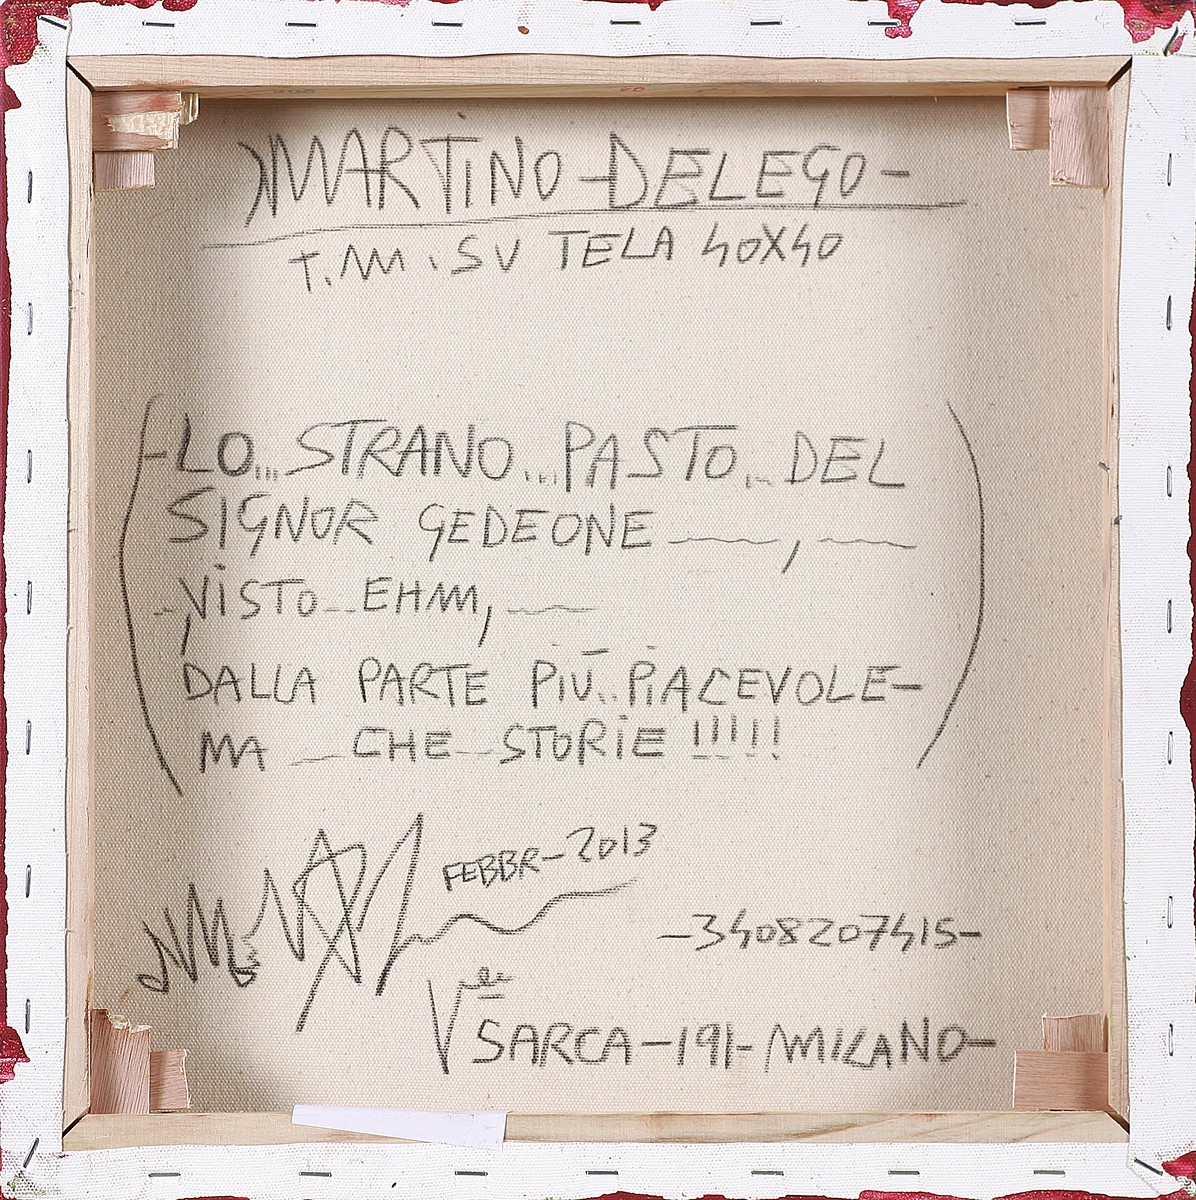 MARTINO-DELEGO-
T.M. SU TELA 40X40
-LO...STRANO...PASTO...DEL
SIGNOR GEDEONE ——, ——
-VISTO...EHM, ——
DALLA PARTE PIÙ..PIACEVOLE-
MA — CHE — STORIE !!!!!
FEBBR-2013
-3408207415-
Vle
SARCA-191-MILANO-